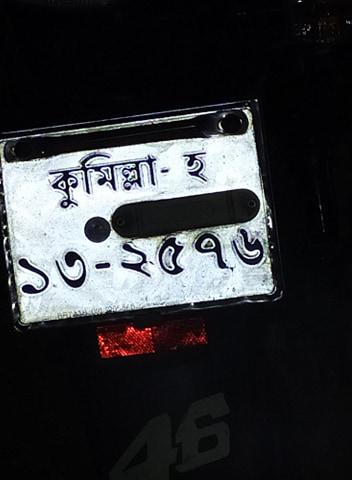 কুমিল্লা- হ
১৩-২৫৭৬
46